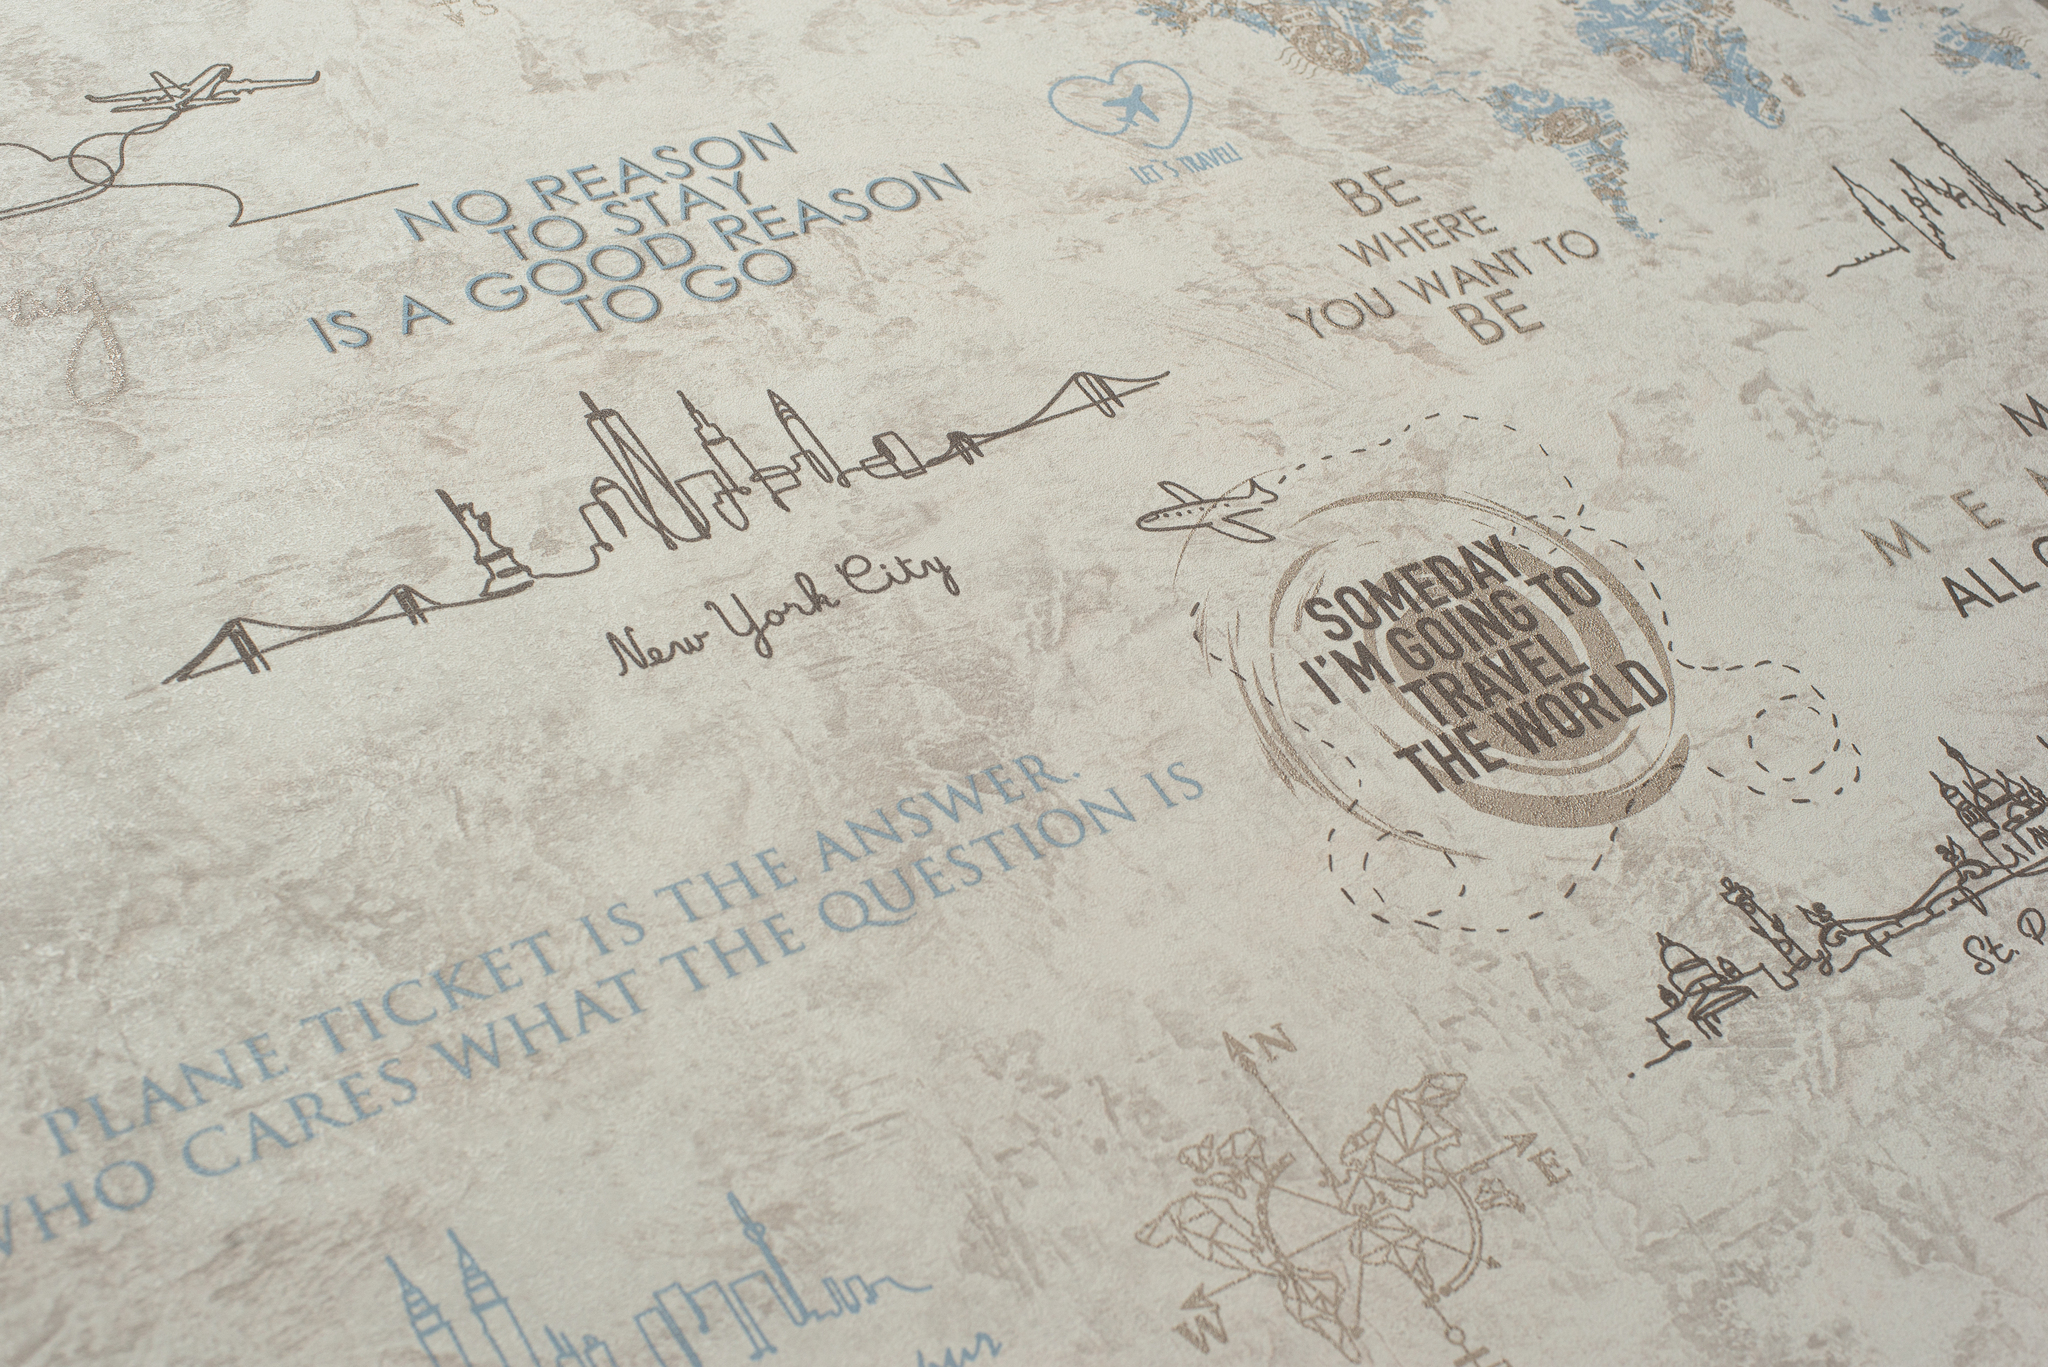 NO REASON
TO STAY
IS A GOOD REASON
TO GO
LET'S TRAVEL!
BE
WHERE
YOU WANT TO
BE
New York City
SOMEDAY
I'M GOING TO
TRAVEL
THE WORLD
ALL
PLANE TICKET IS THE ANSWER.
WHO CARES WHAT THE QUESTION IS
St.
N
E
W